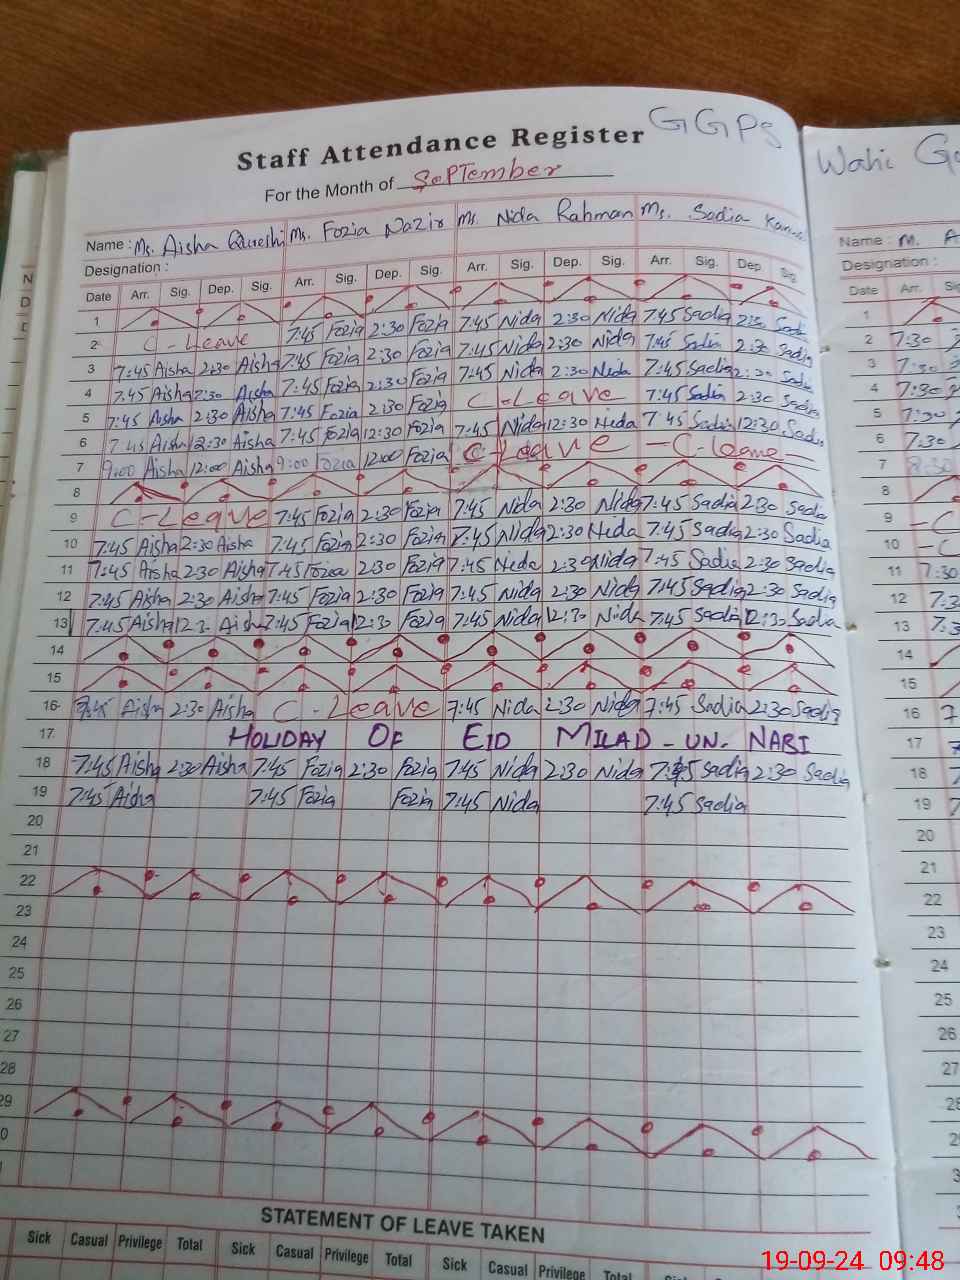 GGPS
Staff Attendance Register
Wahi
For the Month of September
Name : Ms. Aisha Qureshi Ms. Fozia Nazir Ms. Nida Rahman Ms. Sadia
Name : M. A
Designation :
Designation :
Date Arr. Sig. Dep. Sig. Arr. Sig. Dep. Sig. Arr. Sig. Dep. Sig. Arr. Sig. Dep Sig
Date Arr.
1
1
2 C - Leave 7:45 Fozia 2:30 Fozia 7:45 Nida 2:30 Nida 7:45 Sadia 2:30 Sadia
2 7:30
3 7:45 Aisha 2:30 Aisha 7:45 Fozia 2:30 Fozia 7:45 Nida 2:30 Nida 7:45 Sadia 2:30 Sadia
3 7:30
4 7:45 Aisha 2:30 Aisha 7:45 Fozia 2:30 Fozia 7:45 Nida 2:30 Nida 7:45 Sadia 2:30 Sadia
4 7:30
5 7:45 Aisha 2:30 Aisha 7:45 Fozia 2:30 Fozia C-Leave 7:45 Sadia 2:30 Sadia
5 7:30
6 7:45 Aisha 12:30 Aisha 7:45 Fozia 12:30 Fozia 7:45 Nida 12:30 Nida 7:45 Sadia 12:30 Sadia
6 7:30
7 9:00 Aisha 12:00 Aisha 9:00 Fozia 12:00 Fozia C-Leave - C-leave -
7 8:30
8
8
9 C-Leave 7:45 Fozia 2:30 Fozia 7:45 Nida 2:30 Nida 7:45 Sadia 2:30 Sadia
9 -C
10 7:45 Aisha 2:30 Aisha 7:45 Fozia 2:30 Fozia 7:45 Nida 2:30 Nida 7:45 Sadia 2:30 Sadia
10 -C
11 7:45 Aisha 2:30 Aisha 7:45 Fozia 2:30 Fozia 7:45 Nida 2:30 Nida 7:45 Sadia 2:30 Sadia
11 7:30
12 7:45 Aisha 2:30 Aisha 7:45 Fozia 2:30 Fozia 7:45 Nida 2:30 Nida 7:45 Sadia 2:30 Sadia
12 7:3
13 7:45 Aisha 12:3 Aisha 7:45 Fozia 12:30 Fozia 7:45 Nida 12:30 Nida 7:45 Sadia 12:30 Sadia
13 7:3
14
14
15
15
16 Aisha 2:30 Aisha C - Leave 7:45 Nida 2:30 Nida 7:45 Sadia 2:30 Sadia
16 7
17 HOLIDAY OF EID MILAD-UN-NABI
17
18 7:45 Aisha 2:30 Aisha 7:45 Fozia 2:30 Fozia 7:45 Nida 2:30 Nida 7:45 Sadia 2:30 Sadia
18
19 7:45 Aisha 7:45 Fozia Fozia 7:45 Nida 7:45 Sadia
19
20
20
21
21
22
22
23
23
24
24
25
25
26
26
27
27
28
28
29
29
0
STATEMENT OF LEAVE TAKEN
Sick Casual Privilege Total Sick Casual Privilege Total Sick Casual Privilege Total
19-09-24 09:48